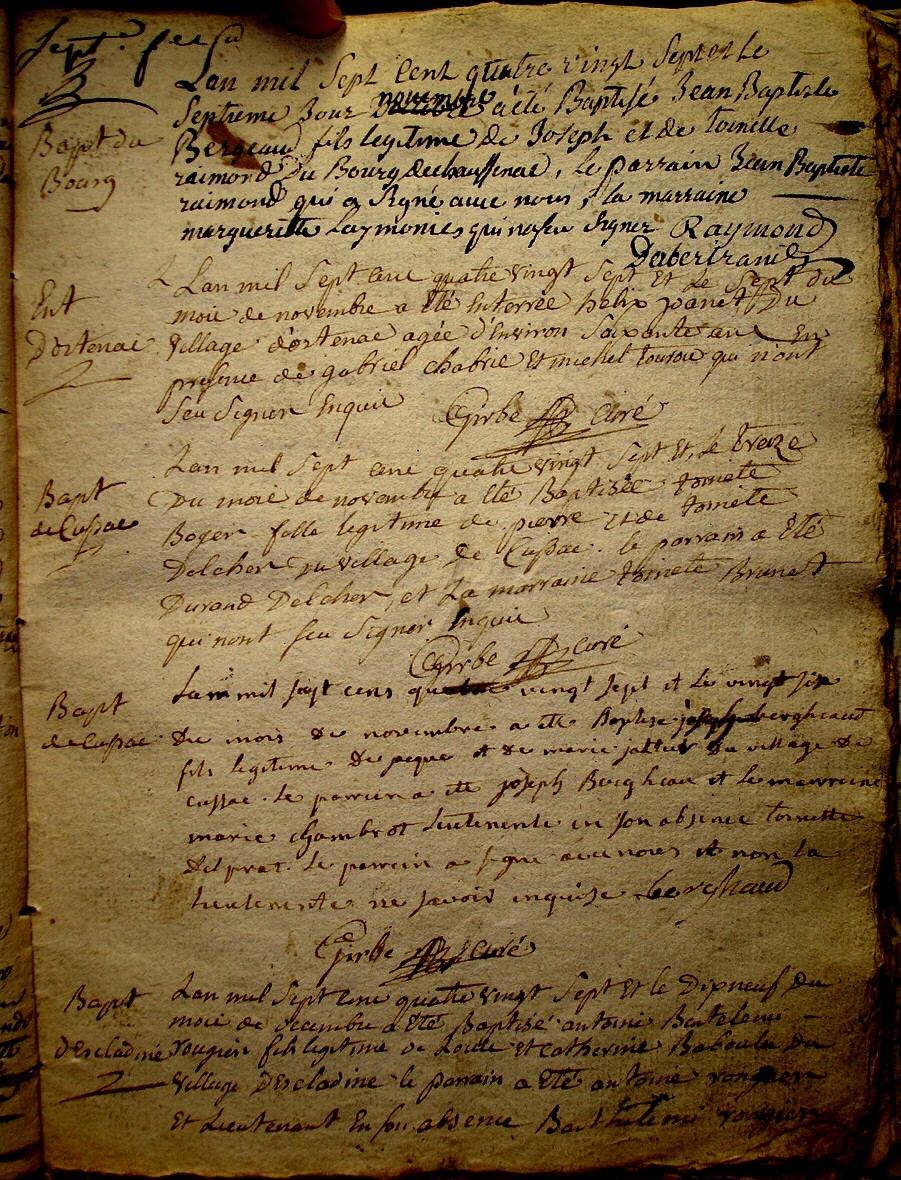 Sept.e
Bapt du
Bourg
Lan mil Sept Cent quatre vingt Sept et le
Septieme Jour novembre a été Baptisé Jean Baptiste
Bergeaud fils legitime de Joseph et de toinette
raimond Du Bourg de chaussenac, Le parrain Jean Baptiste
raimond qui a signé avec nous, la marraine
margueritte Laymonies qui na seu signer Raymond
Ent
Dostenac
Lan mil Sept cent quatre vingt Sept Et Le Sept du
moie de novembre a Eté Enterrée helix panet Du
village d'ostenac agée d'Environ Soixante an En
presence de gabriel chabrie Et michel tourou qui n'ont
Seu Signer Enquie
Girbe curé
Bapt
de Cussac
Lan mil Sept cent quatre vingt Sept Et, le treize
Du moie de novembre a Eté Baptisée tomete
Boyer fille legitime de pierre Et de tomete
Delcher Du village de Cussac. le parrain a Eté
Durand Delcher, et La marraine tomete Brunet
qui nont seu Signer Enquie
Girbe curé
Bapt
de Cussac
Lan mil sept cens quatre vingt sept et le vingt six
Du mois de novembre a ete Baptise joseph bergheaud
fils legitime de jaque et de marie du village de
cussac. Le parrein a ete joseph Bergheau et le marreine
marie chambrot Lieutenente en son absence toinette
Delprat. Le parrein a signe avec nous et non la
Lieutenente ne savoir enquise berghaud
Girbe curé
Bapt
d'Escladine
Lan mil Sept cent quatre vingt Sept Et le Dixneuf du
moie de decembre a Eté Baptisé antoine Bartelemi
rougier fils legitime de Louis Et Catherine Du
village D'Escladine le parrain a Eté antoine rougier
Et Lieutenant En son absence Barthelemi rougier